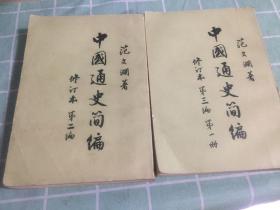 范文澜著
中國通史简编
修订本 第二编
范文澜著
中國通史简编
修订本 第三编 第一册